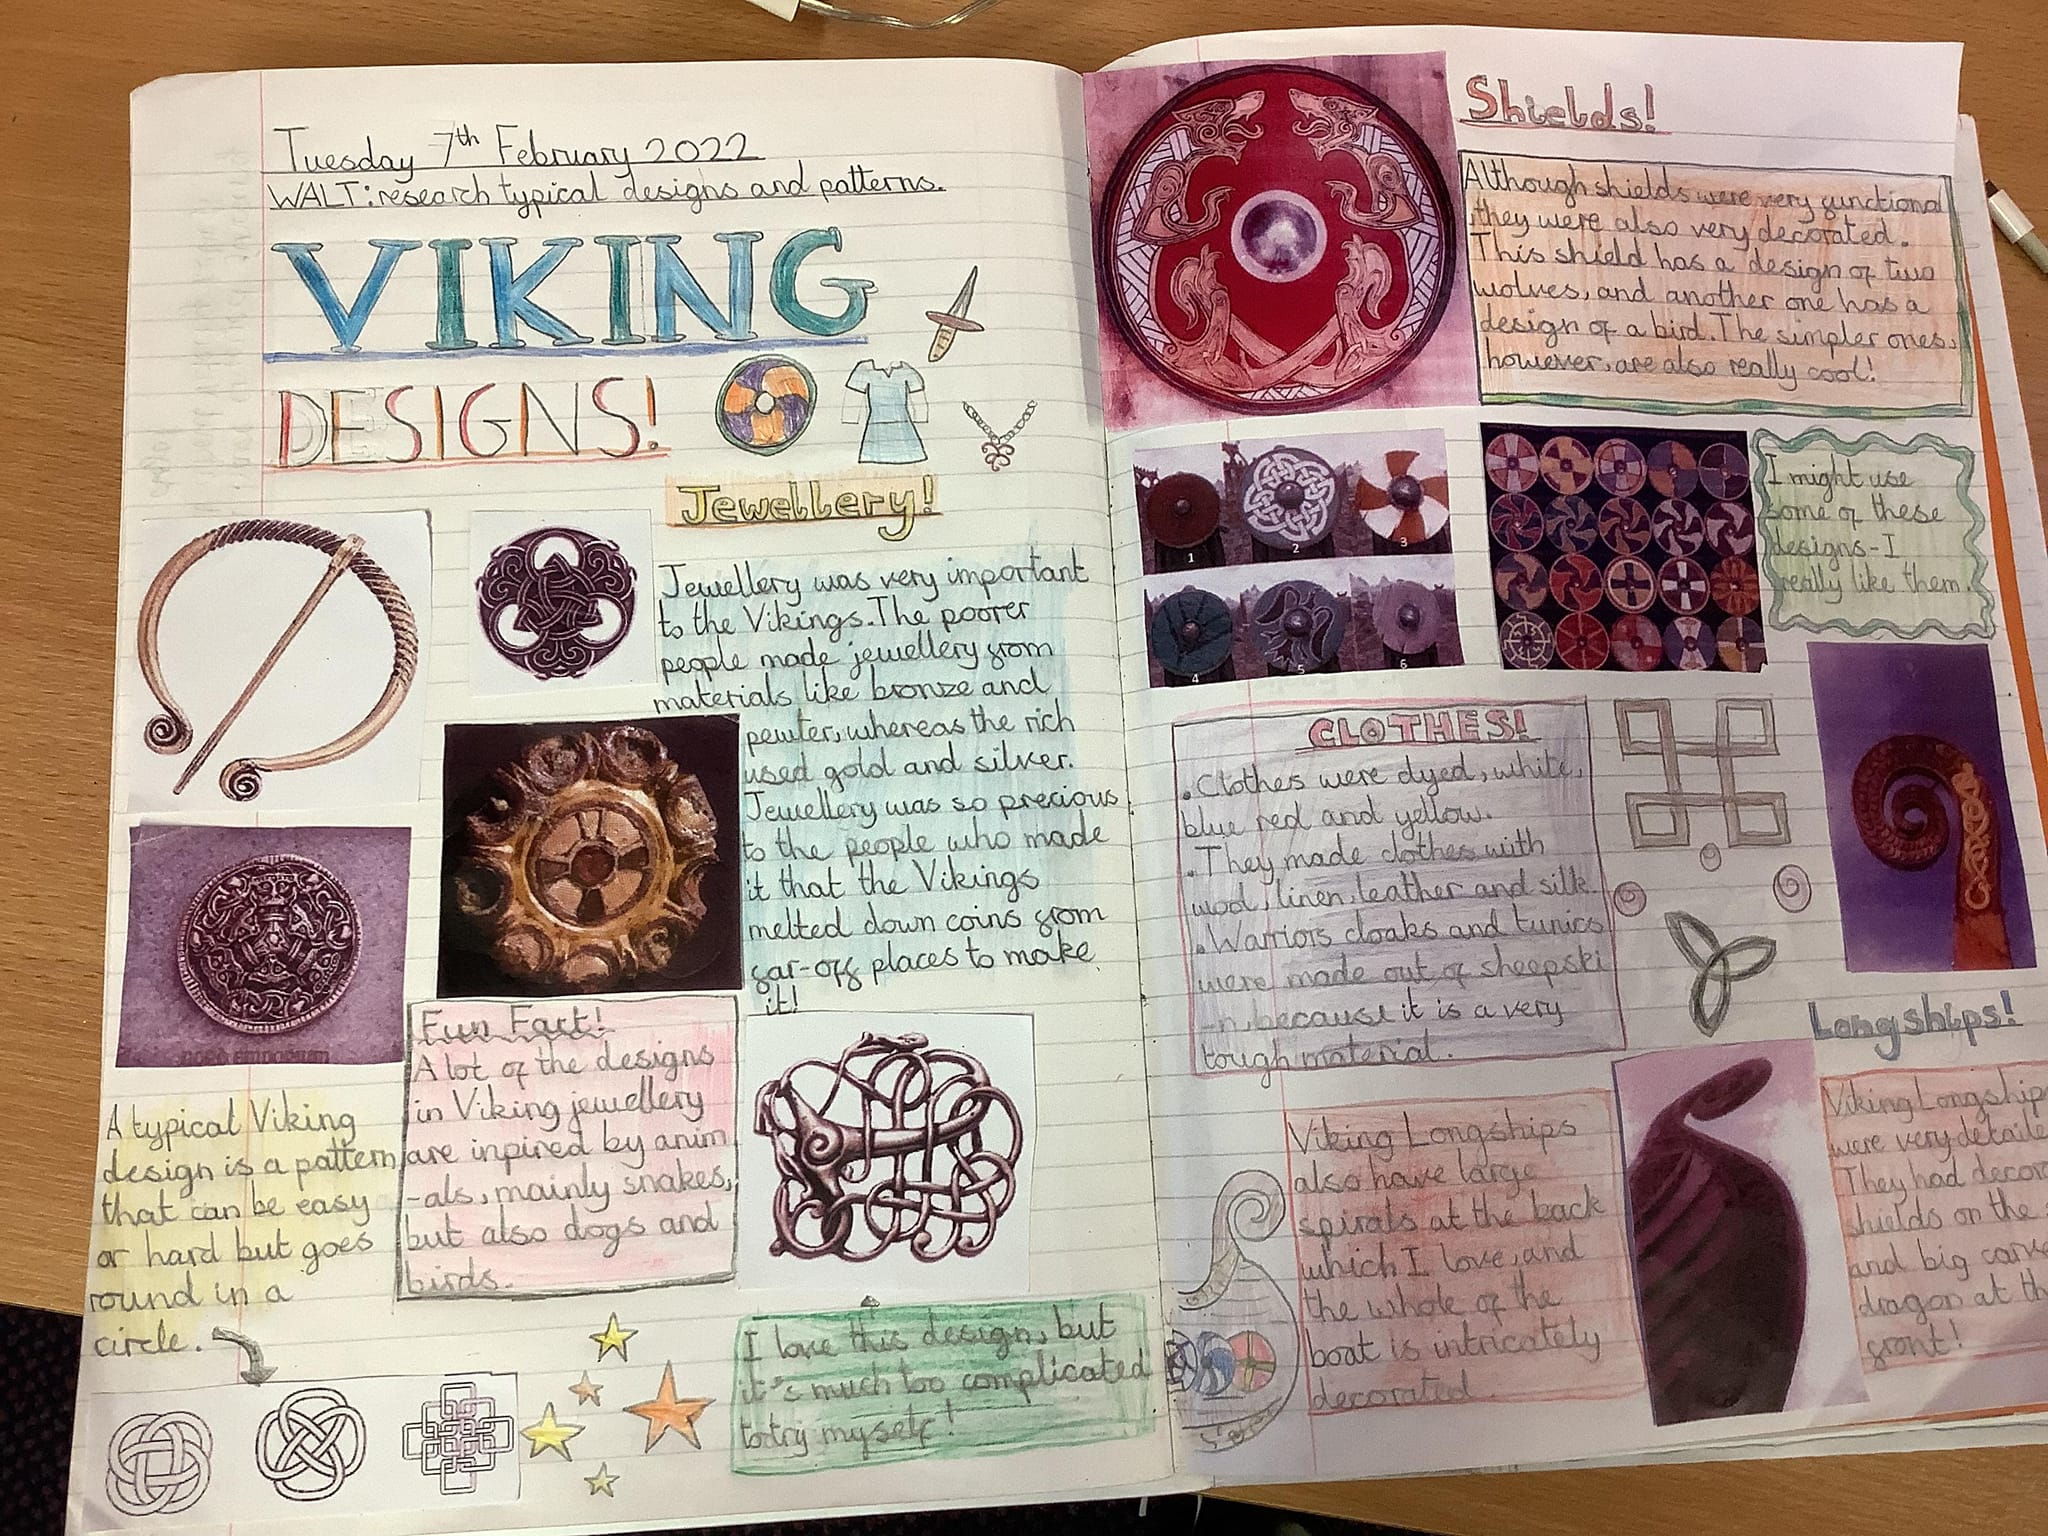 Tuesday 7th February 2022
WALT: research typical designs and patterns.
VIKING
DESIGNS!
Jewellery!
Jewellery was very important
to the Vikings. The poorer
people made jewellery from
materials like bronze and
pewter, whereas the rich
used gold and silver.
Jewellery was so precious
to the people who made
it that the Vikings
melted down coins from
far-off places to make
it!
Fun Fact!
A lot of the designs
in Viking jewellery
are inpired by anim
-als, mainly snakes,
but also dogs and
birds.
A typical Viking
design is a pattern
that can be easy
or hard but goes
round in a
circle.
I love this design, but
it's much too complicated
to try myself!
Shields!
Although shields were very functional
, they were also very decorated.
This shield has a design of two
wolves, and another one has a
design of a bird. The simpler ones,
however, are also really cool!
1 2 3
4 5 6
I might use
some of these
designs - I
really like them.
CLOTHES!
. Clothes were dyed, white,
blue red and yellow.
. They made clothes with
wool, linen, leather and silk.
. Warriors cloaks and tunics
were made out of sheepski
-n, because it is a very
tough material.
Longships!
Viking Longships
also have large
spirals at the back
which I love, and
the whole of the
boat is intricately
decorated.
Viking Longship
were very detaile
They had decor
shields on the s
and big carve
dragon at th
front!